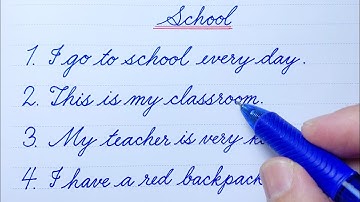 School
1. I go to school every day.
2. This is my classroom.
3. My teacher is very
4. I have a red backpack